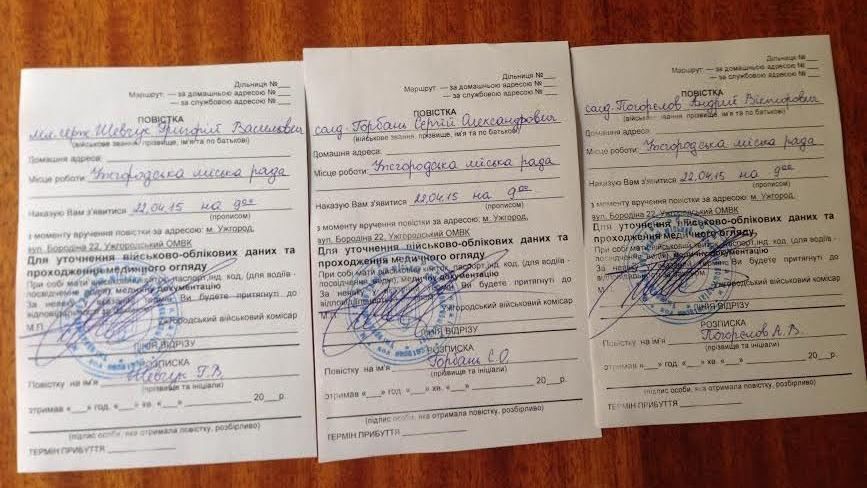 Дільниця №___
Маршрут: — за домашньою адресою №___
— за службовою адресою №___
ПОВІСТКА
мол. серж Шевчук Григорій Васильович
(військове звання, прізвище, ім'я та по батькові)
Домашня адреса:
Місце роботи: Ужгородська міська рада
Наказую Вам з'явитися 22.04.15 на 9 00
(прописом)
з моменту вручення повістки за адресою: м. Ужгород,
вул. Бородіна 22, Ужгородський ОМВК
Для уточнення військово-облікових даних та
проходження медичного огляду
При собі мати військовий квиток, паспорт, інд. код, (для водіїв -
посвідчення водія), медичну документацію
За неявку у вказаний термін Ви будете притягнуті до
відповідальності
М.П. Ужгородський військовий комісар
ЛІНІЯ ВІДРІЗУ
РОЗПИСКА
Повістку на ім'я Шевчук Г.В.
(прізвище та ініціали)
отримав «___» год. «___» хв. «___» ______ 20___р.
(підпис особи, яка отримала повістку, розбірливо)
ТЕРМІН ПРИБУТТЯ
Дільниця №___
Маршрут: — за домашньою адресою №___
— за службовою адресою №___
ПОВІСТКА
солд. Горбань Сергій Олександрович
(військове звання, прізвище, ім'я та по батькові)
Домашня адреса:
Місце роботи: Ужгородська міська рада
Наказую Вам з'явитися 22.04.15 на 9 00
(прописом)
з моменту вручення повістки за адресою: м. Ужгород,
вул. Бородіна 22, Ужгородський ОМВК
Для уточнення військово-облікових даних та
проходження медичного огляду
При собі мати військовий квиток, паспорт, інд. код, (для водіїв -
посвідчення водія), медичну документацію
За неявку у вказаний термін Ви будете притягнуті до
відповідальності
М.П. Ужгородський військовий комісар
ЛІНІЯ ВІДРІЗУ
РОЗПИСКА
Повістку на ім'я Горбань С.О.
(прізвище та ініціали)
отримав «___» год. «___» хв. «___» ______ 20___р.
(підпис особи, яка отримала повістку, розбірливо)
ТЕРМІН ПРИБУТТЯ
Дільниця №___
Маршрут: — за домашньою адресою №___
— за службовою адресою №___
ПОВІСТКА
солд. Погорєлов Андрій Вікторович
(військове звання, прізвище, ім'я та по батькові)
Домашня адреса:
Місце роботи: Ужгородська міська рада
Наказую Вам з'явитися 22.04.15 на 9 00
(прописом)
з моменту вручення повістки за адресою: м. Ужгород,
вул. Бородіна 22, Ужгородський ОМВК
Для уточнення військово-облікових даних та
проходження медичного огляду
При собі мати військовий квиток, паспорт, інд. код, (для водіїв -
посвідчення водія), медичну документацію
За неявку у вказаний термін Ви будете притягнуті до
відповідальності
М.П. Ужгородський військовий комісар
ЛІНІЯ ВІДРІЗУ
РОЗПИСКА
Повістку на ім'я Погорєлов А.В.
(прізвище та ініціали)
отримав «___» год. «___» хв. «___» ______ 20___р.
(підпис особи, яка отримала повістку, розбірливо)
ТЕРМІН ПРИБУТТЯ